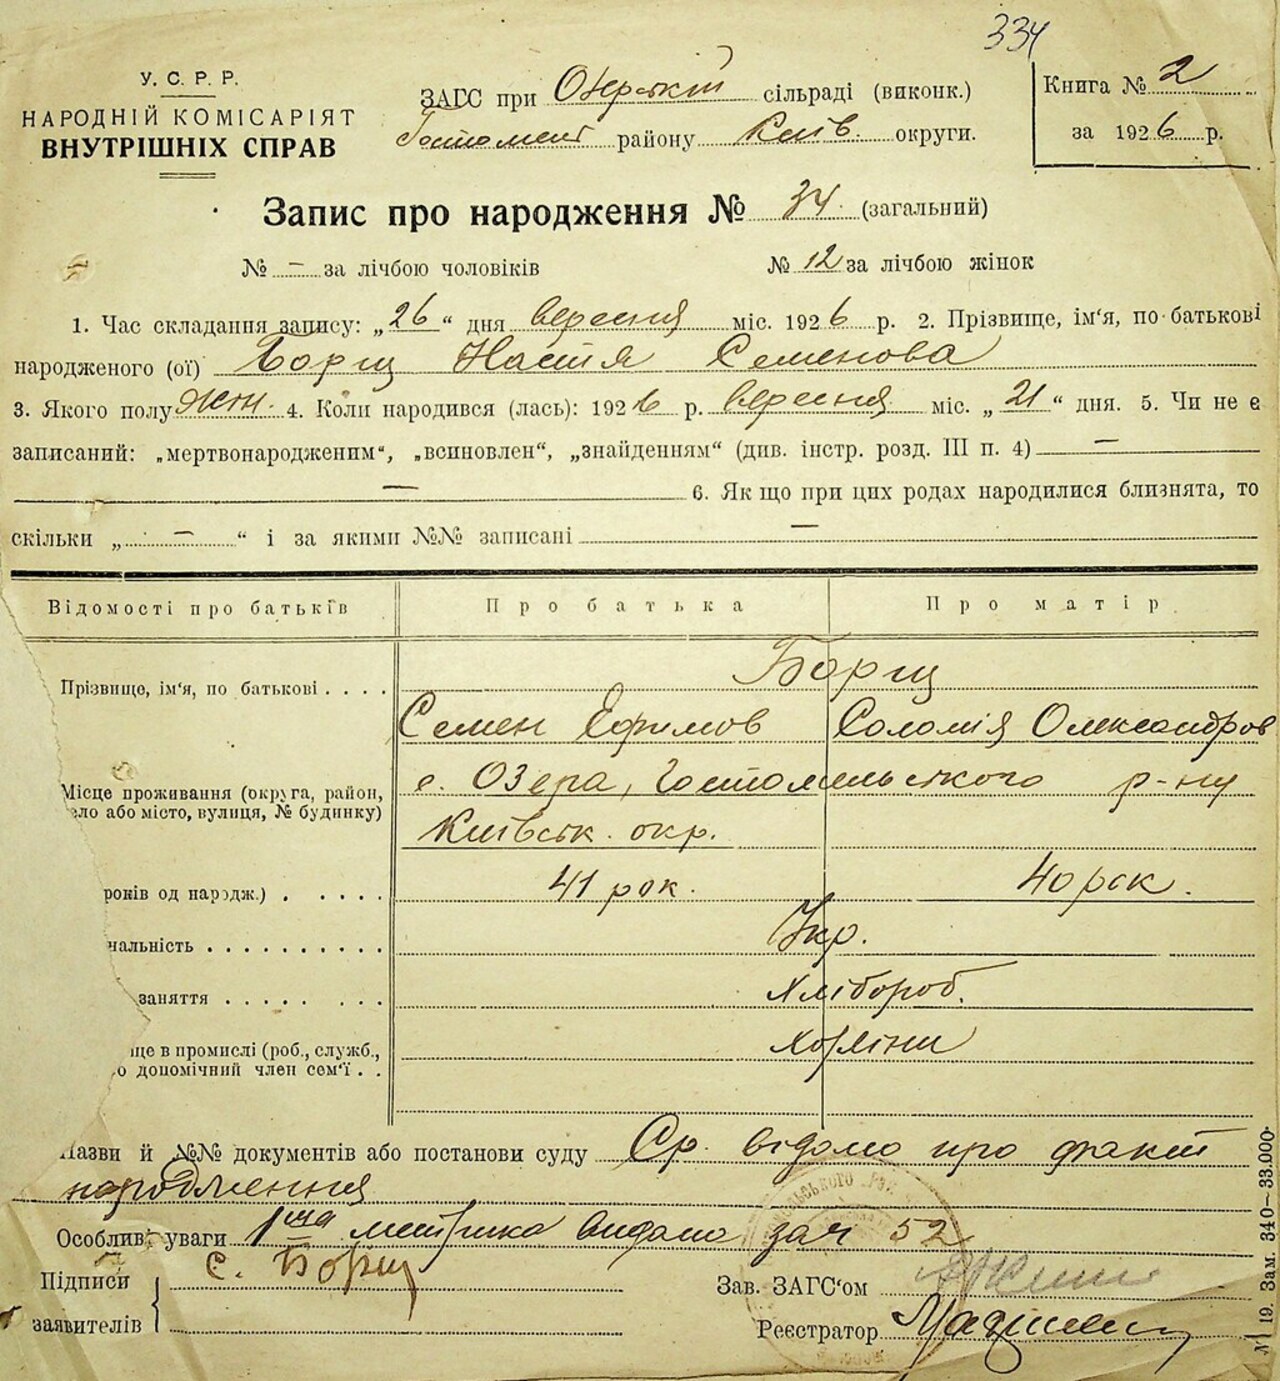 334
У. С. Р. Р.
НАРОДНІЙ КОМІСАРІЯТ
ВНУТРІШНІХ СПРАВ
ЗАГС при Озерській сільраді (виконк.)
Гостомел району Київ. округи.
Книга № 2
за 1926 р.
Запис про народження № 34. (загальний)
№ — за лічбою чоловіків № 12 за лічбою жінок
1. Час складання запису: „26“ дня вересня міс. 1926 р. 2. Прізвище, ім'я, по батькові
народженого (ої) Борщ Настя Семенова
3. Якого полу жін. 4. Коли народився (лась): 1926 р. вересня міс. „21“ дня. 5. Чи не є
записаний: „мертвонародженим“, „всиновлен“, „знайденням“ (див. інстр. розд. III п. 4) —
— 6. Як що при цих родах народилися близнята, то
скільки „ — “ і за якими №№ записані —
Відомості про батьків Про батька Про матір
Прізвище, ім'я, по батькові . . . . Борщ
Семен Ефимов Соломія Олександров
Місце проживання (округа, район, с. Озера, Гостомельського р-ну
ело або місто, вулиця, № будинку) Київськ. окр.
років од народж.) . . . . . 41 рок. 40 рок.
нальність . . . . . . . . . . Укр.
заняття . . . . . . . . Хлібороб.
ще в промислі (роб., служб.,
о допомічний член сем'ї . .
Назви й №№ документів або постанови суду Ср. відомо про факт
народження
Особлив. уваги 1ша метрика видано за ч 52
Підписи
заявителів
С. Борщ
Зав. ЗАГС'ом
Реєстратор
№ 19. Зам. 340—33.000.